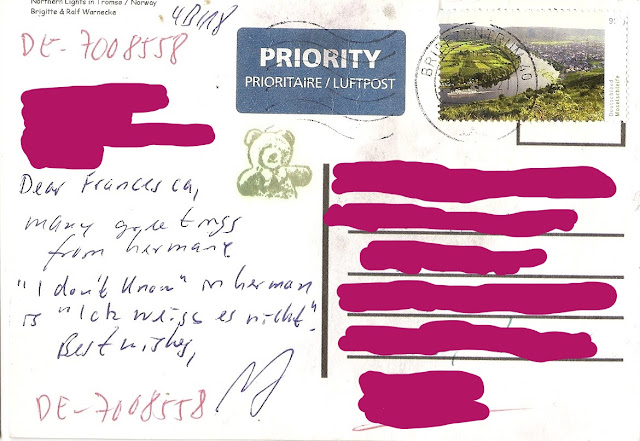 Northern Lights in Tromsø / Norway
Brigitte & Ralf Warnecke
DE-7008558
PRIORITY
PRIORITAIRE / LUFTPOST
BRIEFZENTRUM 10
Deutschland
Moselschleife
Dear Francesca,
many greetings
from Germany
"I don't know" in German
is "Ich weiss es nicht".
Best wishes,
DE-7008558